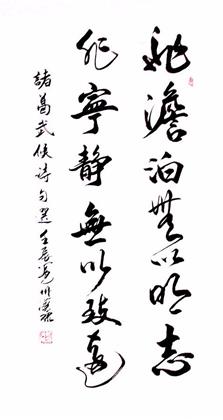 非澹泊無以明志
非寧靜無以致遠
諸葛武侯诗句選壬辰